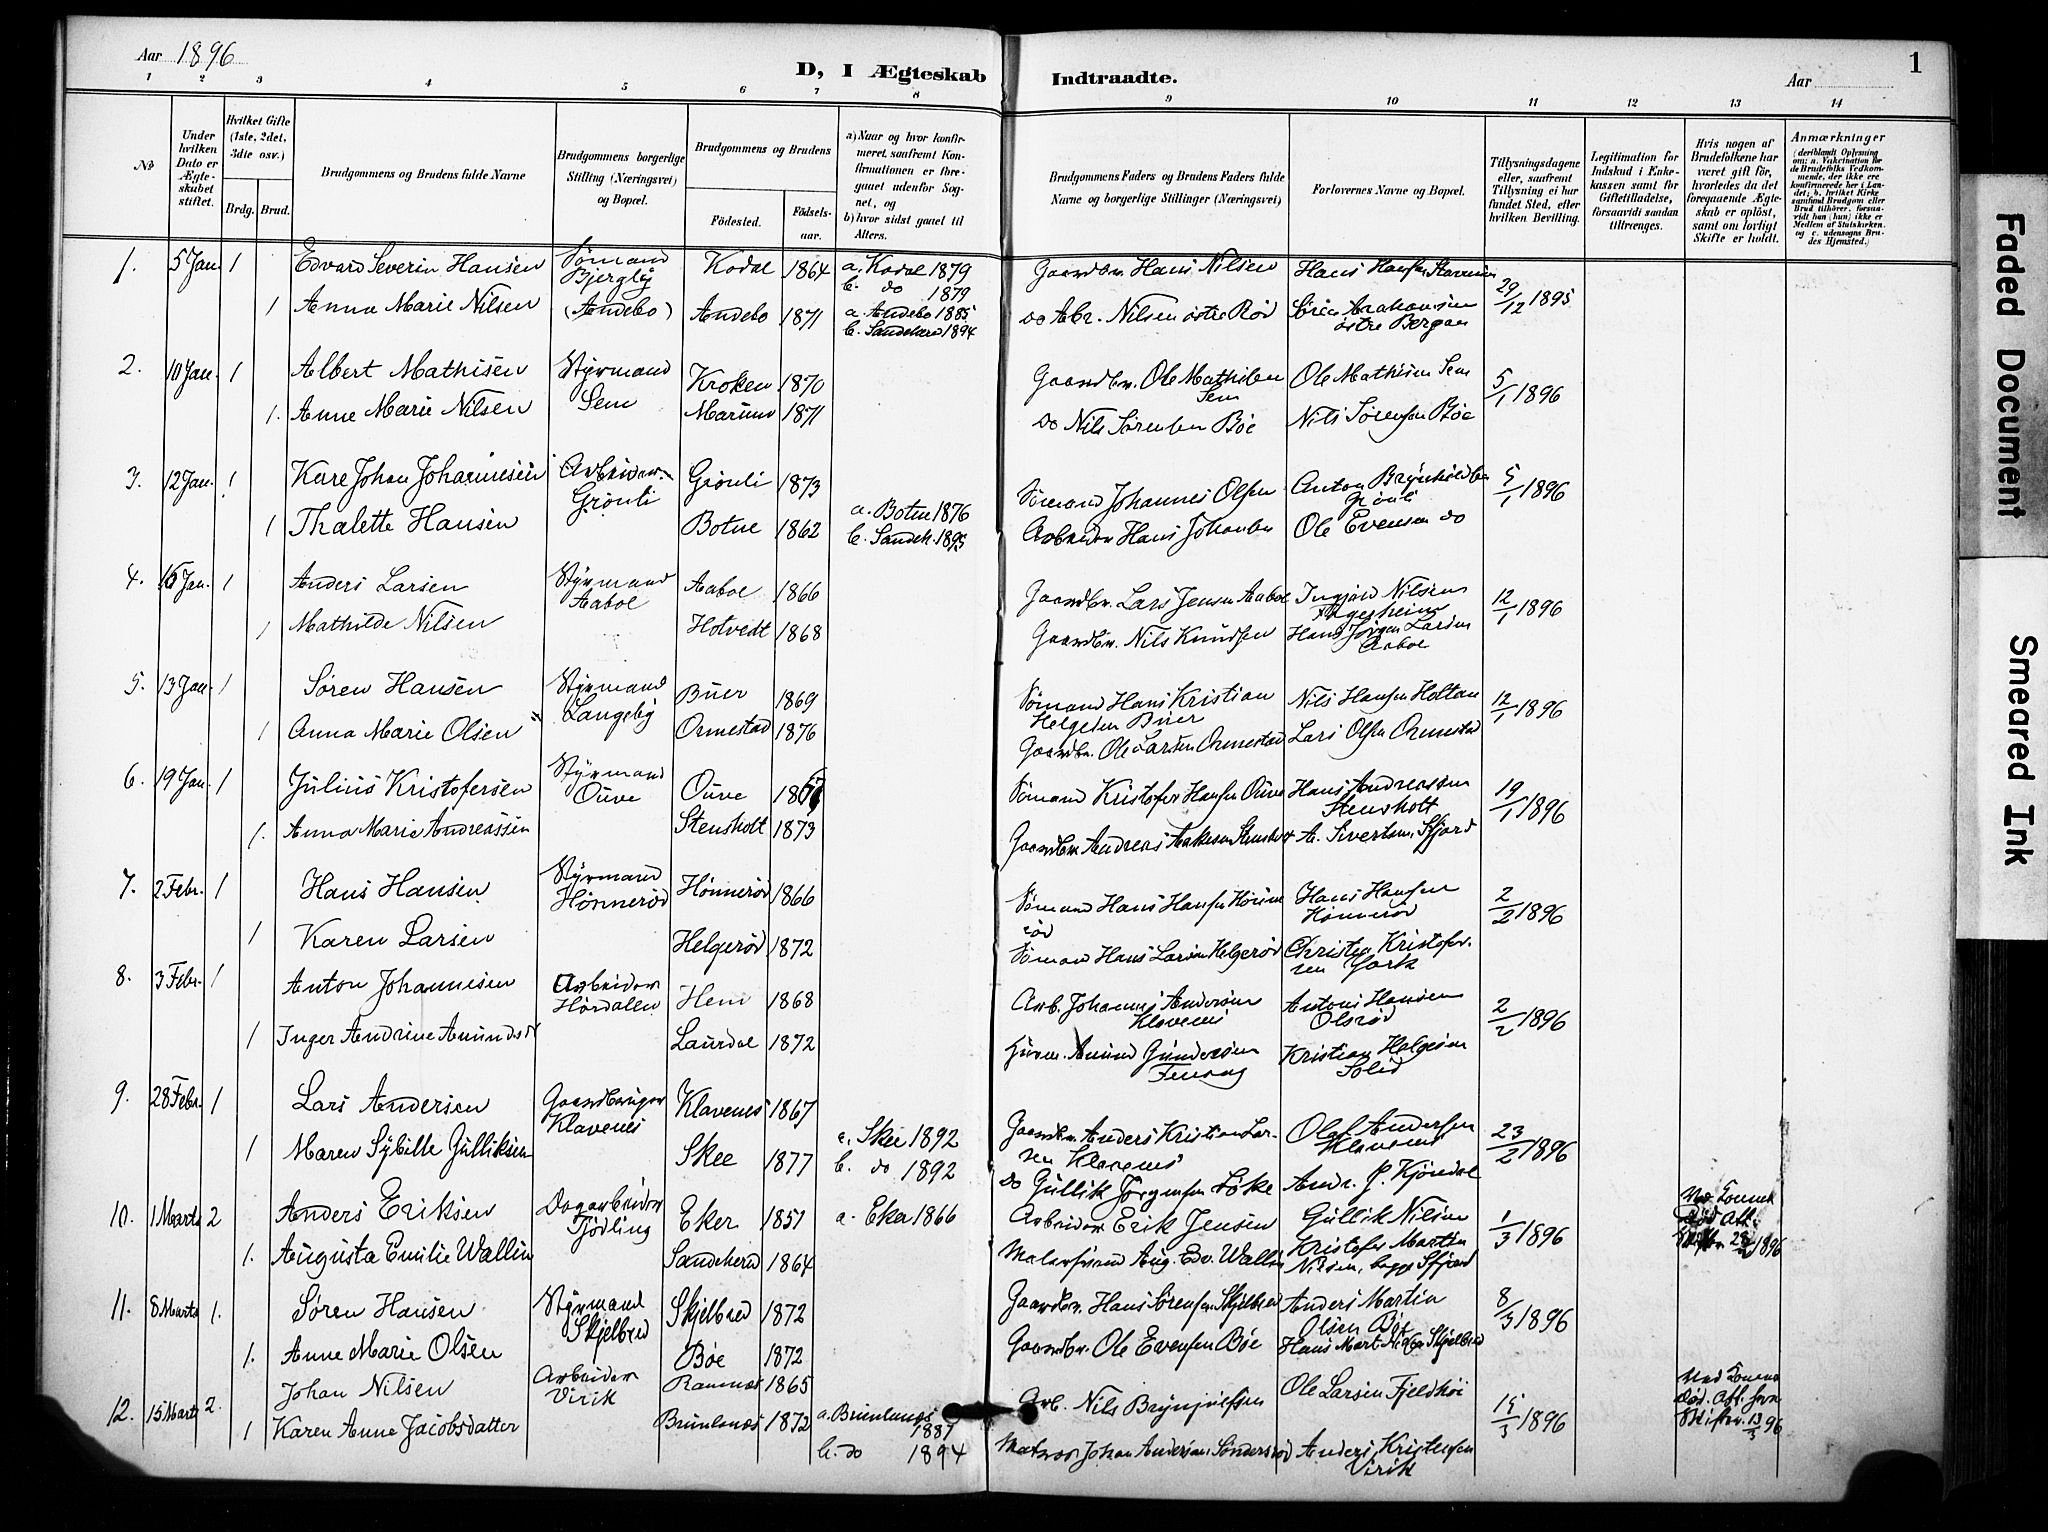 Aar 1896
D, I Ægteskab Indtraadte.
Aar
1
1 2 3 4 5 6 7 8 9 10 11 12 13 14
No
Under hvilken Dato er Ægteskabet stiftet.
Hvilket Gifte (1ste, 2det, 3die osv.)
Brdg. Brud.
Brudgommens og Brudens fulde Navne
Brudgommens borgerlige Stilling (Næringsvei) og Bopæl.
Brudgommens og Brudens
Fødested. Fødselsaar.
a) Naar og hvor konfirmeret, saafremt Konfirmationen er foregaaet udenfor Sognet, og
b) hvor sidst gaaet til Alters.
Brudgommens Faders og Brudens Faders fulde Navne og borgerlige Stillinger (Næringsvei)
Forlovernes Navne og Bopæl.
Tillysningsdagene eller, saafremt Tillysning ei har fundet Sted, efter hvilken Bevilling.
Legitimation for Indskud i Enkekassen samt for Giftetilladelse, forsaavidt saadan tiltrænges.
Hvis nogen af Brudefolkene har været gift før, hvorledes da det foregaaende Ægteskab er opløst, samt om lovligt Skifte er holdt.
Anmærkninger
(deriblandt Oplysning om: a. Vakcination for de Brudefolks Vedkommende, der ikke ere konfirmerede her i Landet; b. hvilket Kirkesamfund Brudgom eller Brud tilhører, forsaavidt han (hun) ikke er Medlem af Statskirken, og c. udensogns Brudes Hjemsted.)
1. 5 Jan. 1 Edvard Severin Hansen Sømand Bjergby Kodal 1864 a. Kodal 1879 b. do 1879 Gaardbr. Hans Nilsen Hans Hansen 29/12 1895
1 Anna Marie Nilsen (Andebo) Andebo 1871 a. Andebo 1885 b. Sandeherd 1894 do Abr. Nilsen østre Rød Søren Abrahamsen østre Bergan
2. 10 Jan. 1 Albert Mathisen Styrmand Sem Kroken 1870 Gaardbr. Ole Mathisen Sem Ole Mathisen Sem 5/1 1896
1. Anne Marie Nilsen 1871 do Nils Sørensen Bøe Nils Sørensen Bøe
3. 12 Jan. 1 Kare Johan Johannesen Arbeider Grønli Grønli 1873 Sømand Johannes Olsen Anton Grønli 5/1 1896
1 Thalette Hansen Botne 1862 a. Botne 1876 b. Sandeh. 1895 Arbeider Hans Johansen Ole Evensen do
4. 16 Jan. 1 Anders Larsen Styrmand Aaboe Aaboe 1866 Gaardbr. Lars Jensen Aaboe Nilsen 12/1 1896
1 Mathilde Nilsen Hotvedt 1868 Gaardbr. Nils Knudsen Hans Jørgen Larsen Aaboe
5. 13 Jan. 1 Søren Hansen Styrmand Langeby Buer 1869 Sømand Hans Kristian Helgesen Buer Nils Hansen Holtan 12/1 1896
1 Anna Marie Olsen Ormestad 1876 Gaardbr. Ole Larsen Ormestad Lars Olsen Ormestad
6. 19 Jan. 1 Julius Kristofersen Styrmand Ouve Ouve Sømand Kristofer Hansen Ouve Hans Andreassen Stensholt 19/1 1896
1. Anna Marie Andreassen Stensholt 1873 Gaardbr. Andreas Stensholt A. Sivertsen, Sfjord
7. 2 Febr. 1 Hans Hansen Styrmand Hønnerød Hønnerød 1866 Sømand Hans Hansen Hønnerød Hans Hansen Hønnerød 2/2 1896
1 Karen Larsen Helgerød 1872 Sømand Hans Larsen Helgerød Christen Kristofersen York
8. 3 Febr. 1 Anton Johannesen Arbeider Hørdalen Hem 1868 Arb. Johannes Andersen Klavenes Antoni Hansen Olsrød 2/2 1896
1 Inger Andrine Amundsdt Laurdal 1872 Husm. Amund Gundersen Kristian Helgesen Solid
9. 28 Febr. 1 Lars Andersen Gaardbruger Klavenes Klavenes 1867 Gaardbr. Anders Kristian Larsen Klavenes Olaf Andersen Klavenes 23/2 1896
1 Maren Sybille Gulliksen Skee 1877 a. Skee 1892 b. do 1892 do Gullik Jørgensen Løke Andr. J. Kjøndal
10. 1 Marts 2 Anders Eriksen Dagarbeider Tjødling Eker 1851 a. Eker 1866 Arbeider Erik Jensen Gullik Nilsen 1/3 1896 Ved Konens død Att. Skifter. 28/2 1896
1. Augusta Emilie Wallin Sandeherd 1864 Malersvend Aug. Edv. Wallin Kristofer Martin Nilsen, begge Sfjord
11. 8 Marts 1. Søren Hansen Styrmand Skjelbred Skjelbred 1872 Gaardbr. Hans Sørensen Skjelbred Anders Martin Olsen Bøe 8/3 1896
1. Anne Marie Olsen Bøe 1872 Gaardbr. Ole Evensen Bøe Hans Mart. Skjelbred
12. 15 Marts 2. Johan Nilsen Arbeider Virik Ramnæs 1865 Arb. Nils Brynjulfsen Ole Larsen Fjeldhøi 15/3 1896 Ved Konens død. Att. fra Skifter. 13/3 96
1 Karen Anne Jacobsdatter Brunlanæs 1872 a. Brunlanæs 1887 b. do 1894 Matros Johan Andersen Søndersrød Anders Kristensen Virik
Faded Document
Smeared Ink